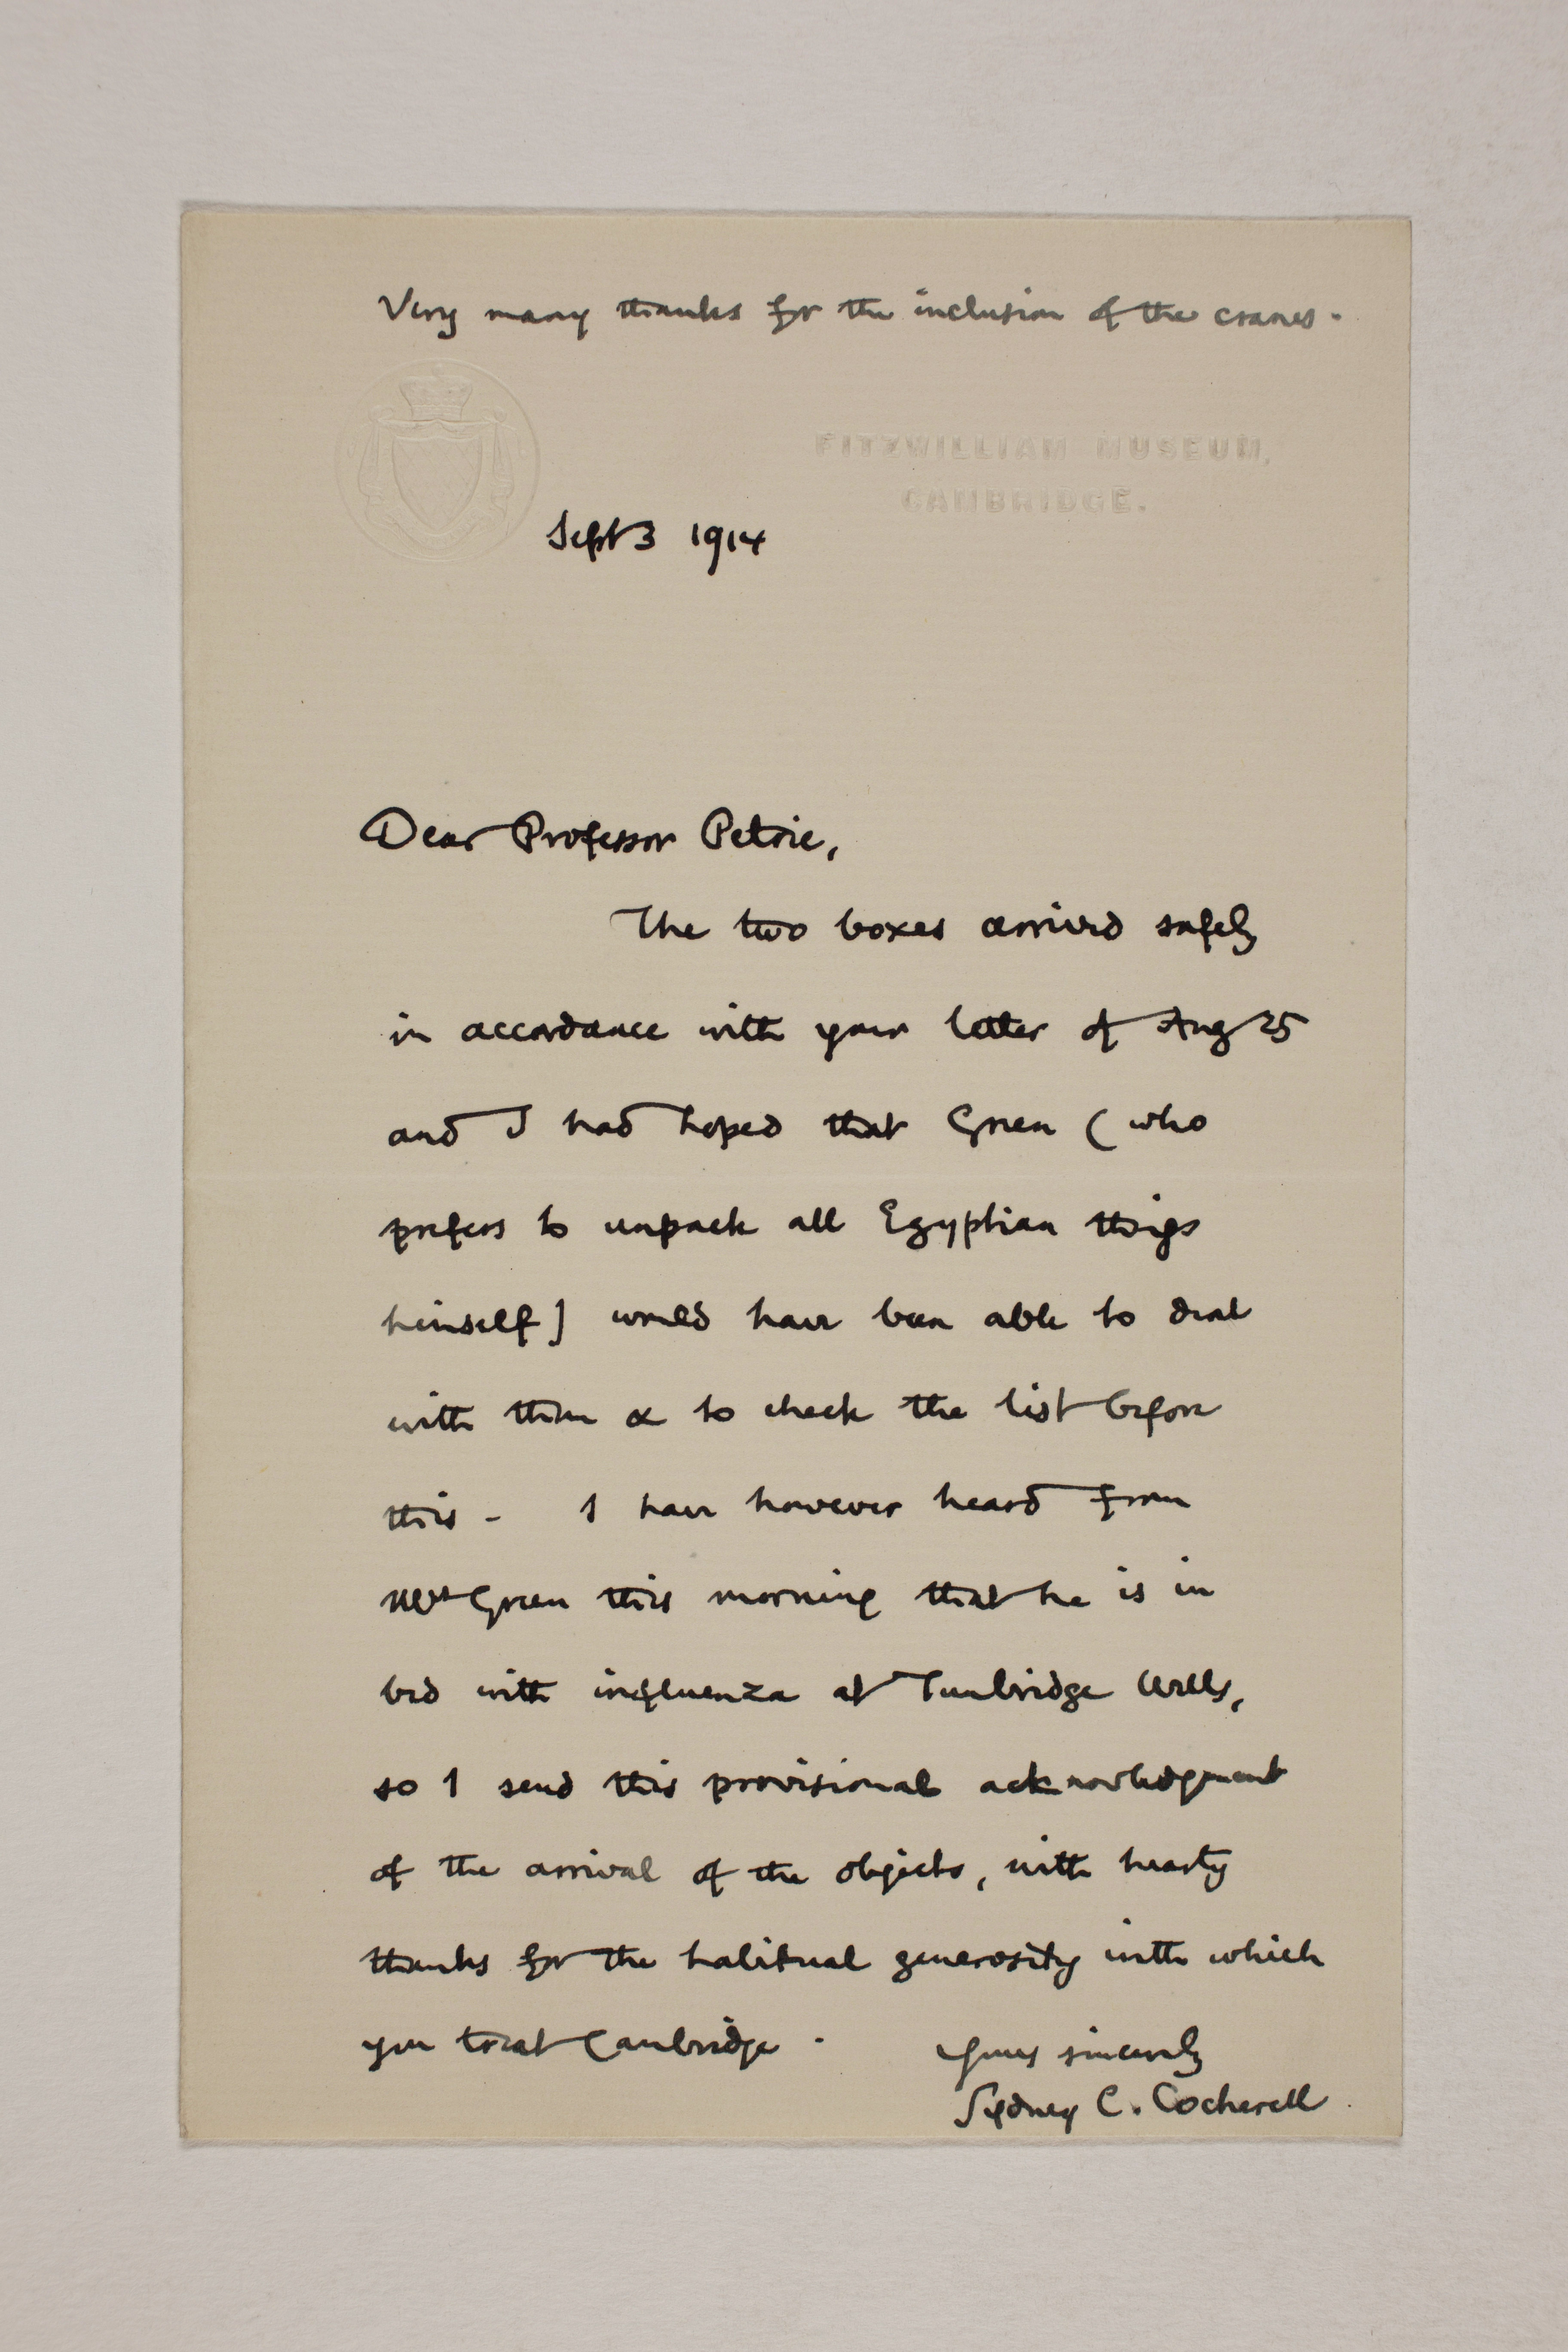 Very many thanks for the inclusion of the cranes.
FITZWILLIAM MUSEUM,
CAMBRIDGE.
Sept 3 1914
Dear Professor Petrie,
The two boxes arrived safely
in accordance with your letter of Aug 25
and I had hoped that Green (who
prefers to unpack all Egyptian things
himself] would have been able to deal
with them & to check the list before
this - I have however heard from
Mrs Green this morning that he is in
bed with influenza at Tunbridge Wells,
so I send this provisional acknowledgment
of the arrival of the objects, with hearty
thanks for the habitual generosity with which
you treat Cambridge.
Yours sincerely
Sydney C. Cockerell